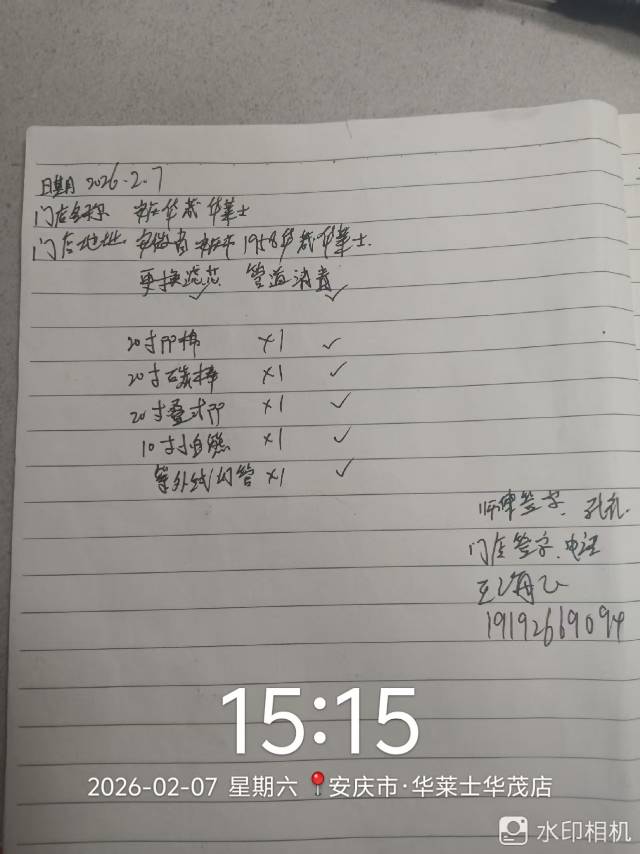 日期 2026.2.7
门店名称 安庆华茂华莱士
门店地址 安徽省安庆市1958华茂华莱士.
更换滤芯 ✓ 管道消费 ✓
20寸PP棉 ×1 ✓
20寸碳棒 ×1 ✓
20寸叠式PP ×1 ✓
10寸 ×1 ✓
紫外线灯管 ×1 ✓
师傅签字. 孔礼.
门店签字.电话
王海
19192669094
15:15
2026-02-07 星期六 📍安庆市·华莱士华茂店
水印相机